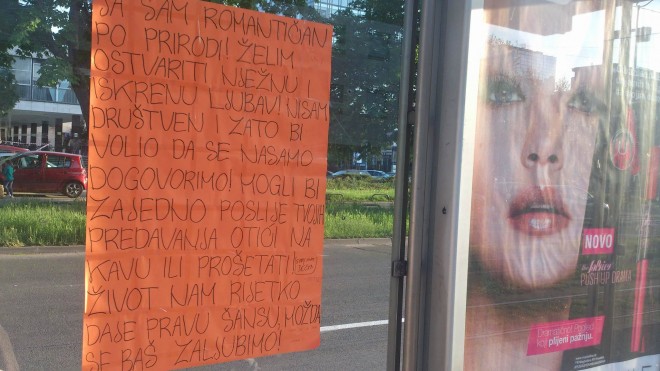 JA SAM ROMANTIČAN
PO PRIRODI! ŽELIM
OSTVARITI NJEŽNU I
ISKRENU LJUBAV! NISAM
DRUŠTVEN I ZATO BI
VOLIO DA SE NASAMO
DOGOVORIMO! MOGLI BI
ZAJEDNO POSLIJE TVOJIH
PREDAVANJA OTIĆI NA
KAVU ILI PROŠETATI!
ŽIVOT NAM RIJETKO
DAJE PRAVU ŠANSU, MOŽDA
SE BAŠ ZALJUBIMO!
NOVO
the falsies
PUSH UP DRAMA
plijeni pažnju.